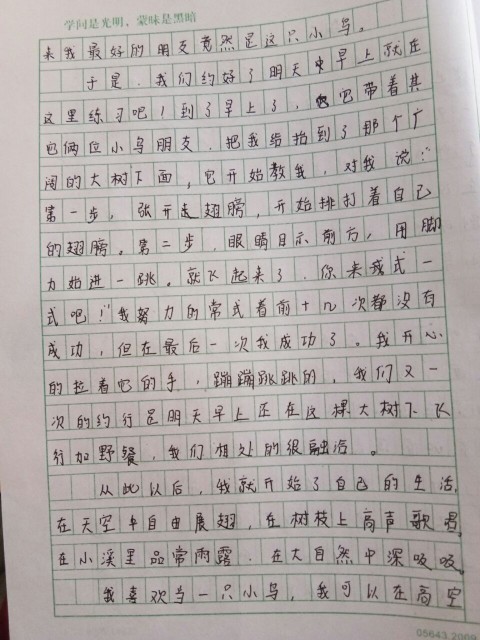 学问是光明，蒙昧是黑暗
来我最好的朋友竟然是这只小鸟。
于是，我们约好了明天早上就在
这里练习吧！到了早上了，它带着其
它俩位小鸟朋友，把我给抬到了那个广
阔的大树下面，它开始教我，对我说："
第一步，张开走翅膀，开始排打着自己
的翅膀。第二步，眼睛目示前方，用脚
力始进一跳。就飞起来了，你来我式一
式吧！"我努力的常式着前十几次都没有
成功，但在最后一次我成功了。我开心
的拉着它的手，蹦蹦跳跳的，我们又一
次的约行是明天早上还在这棵大树下飞
行加野餐，我们相处的很融洽。
从此以后，我就开始了自己的生活，
在天空中自由展翅，在树枝上高声歌唱，
在小溪里品常雨露，在大自然中深吸吸。
我喜欢当一只小鸟，我可以在高空
05643.2009